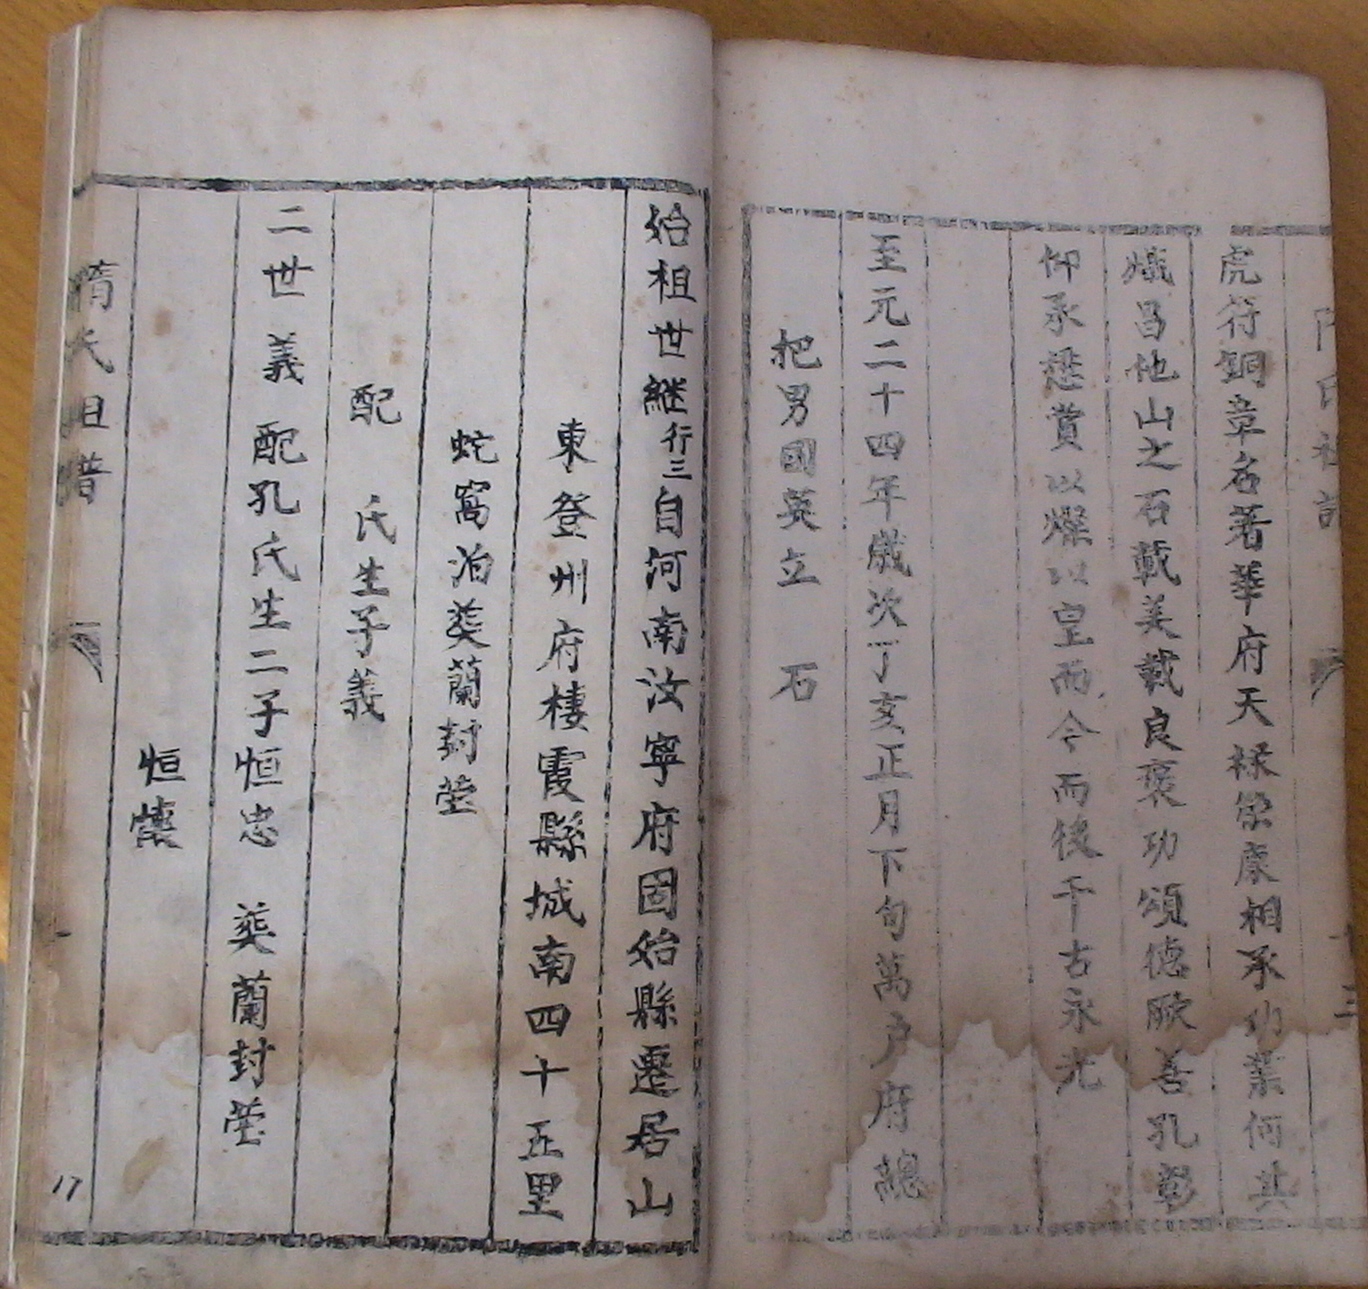 虎符銅章名著華府天祿榮康相承功業何其
熾昌他山之石載美載良褒功頌德厥善孔彰
仰承懋賞以燦以皇而今而後千古永光
至元二十四年歲次丁亥正月下旬萬户府總
把男國英立 石
始祖世継行三自河南汝寧府固始縣遷居山
東登州府棲霞縣城南四十五里
蛇窩泊葬蘭封瑩
配 氏生子義
二世 義 配孔氏生二子恒忠 葬蘭封瑩
恒懷
隋氏
17